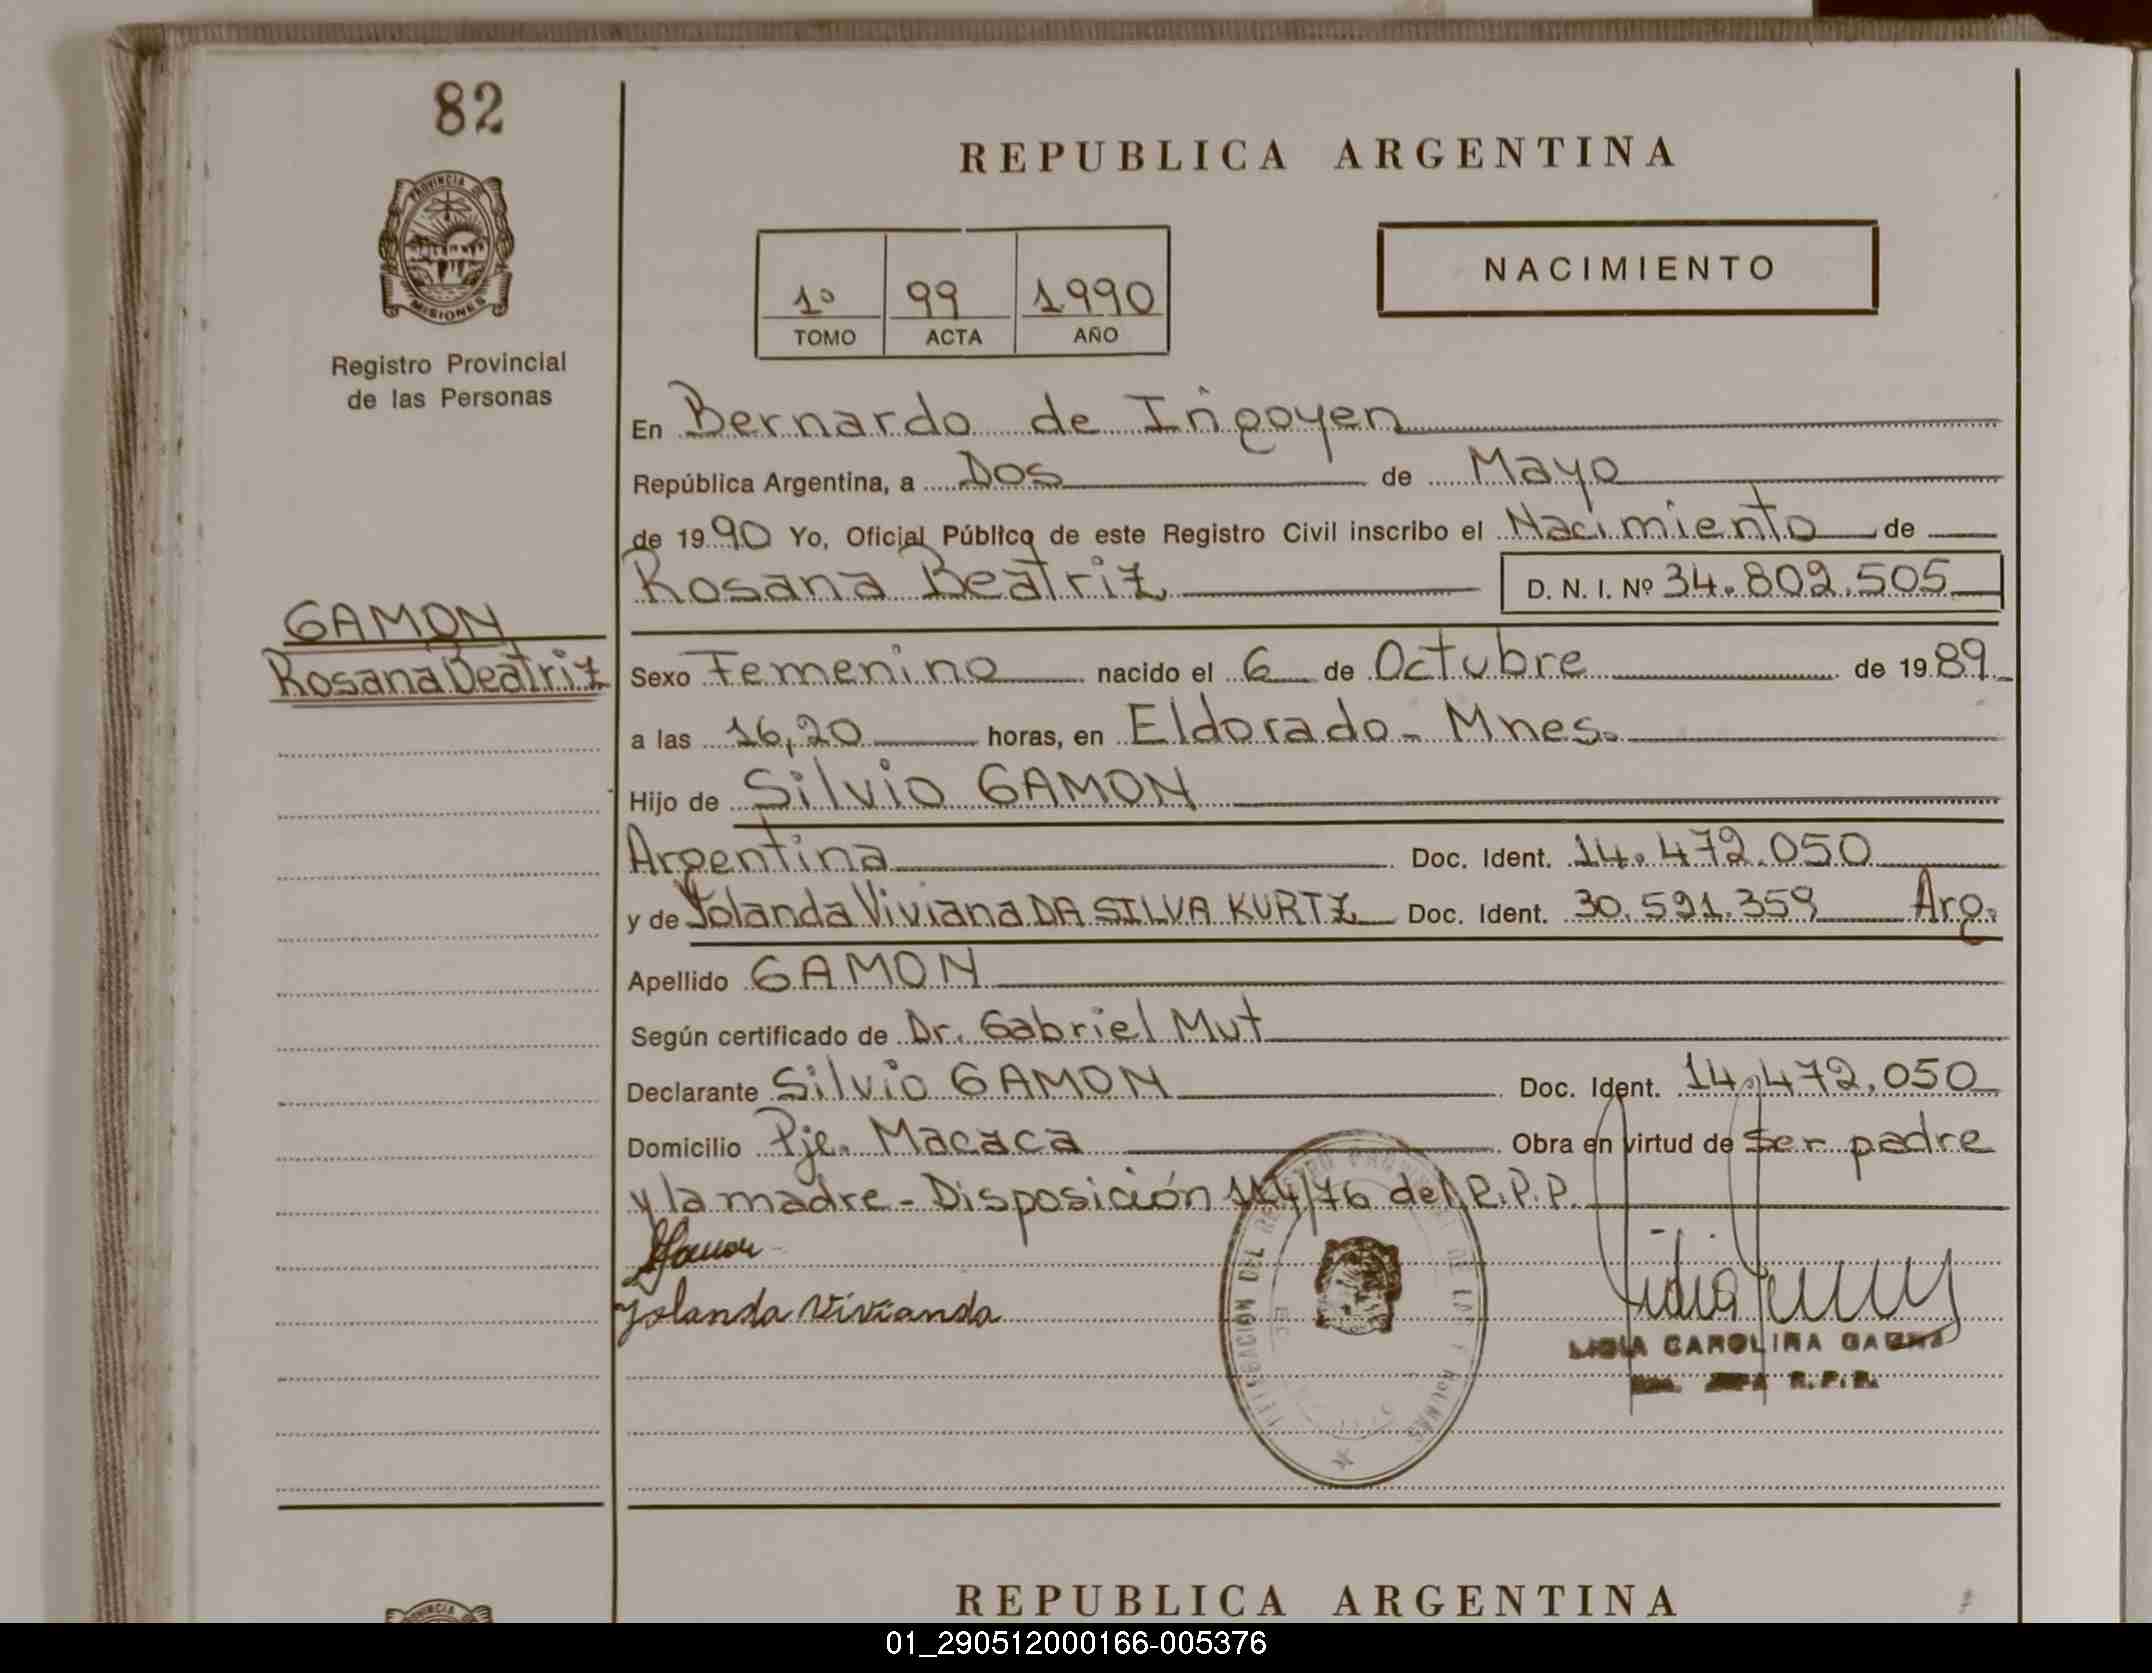 82
REPUBLICA ARGENTINA
PROVINCIA DE
MISIONES
Registro Provincial
de las Personas
1º 99 1990
TOMO ACTA AÑO
NACIMIENTO
En Bernardo de Irigoyen
República Argentina, a Dos de Mayo
de 1990 Yo, Oficial Público de este Registro Civil inscribo el Nacimiento de
Rosana Beatriz D. N. I. Nº 34.802.505
GAMON
Rosana Beatriz
Sexo Femenino nacido el 6 de Octubre de 1989
a las 16,20 horas, en Eldorado - Mnes.
Hijo de Silvio GAMON
Argentina Doc. Ident. 14.472.050
y de Yolanda Viviana DA SILVA KURTZ Doc. Ident. 30.591.359 Arg.
Apellido GAMON
Según certificado de Dr. Gabriel Mut
Declarante Silvio GAMON Doc. Ident. 14.472.050
Domicilio Pje. Macaca Obra en virtud de Ser padre
y la madre - Disposición 114/76 del R.P.P.
Yolanda Vivianda
LIDIA CAROLINA
R.P.P.
REPUBLICA ARGENTINA
01_290512000166-005376